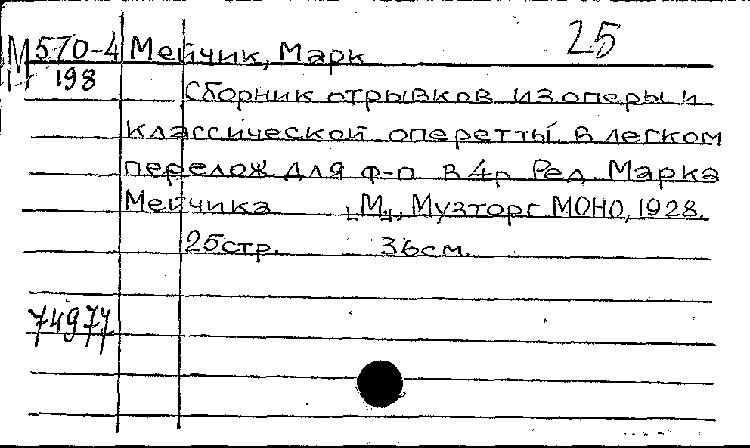 25
М 570-4 Мейчик, Марк
198
Сборник отрывков из оперы и
классической оперетты в легком
перелож для ф-п в 4р Ред Марка
Мейчика [М], Музторг МОНО, 1928.
25стр. 36см.
74977